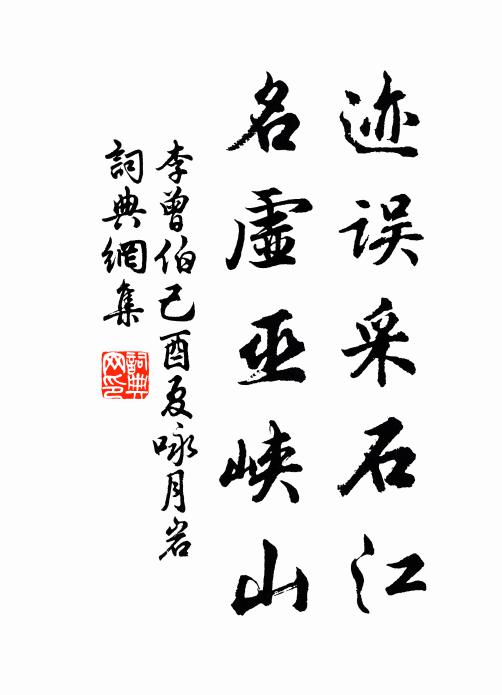 迹误采石江
名虚巫峡山
李曾伯己酉夏咏月岩
詞典網集
詞典网印